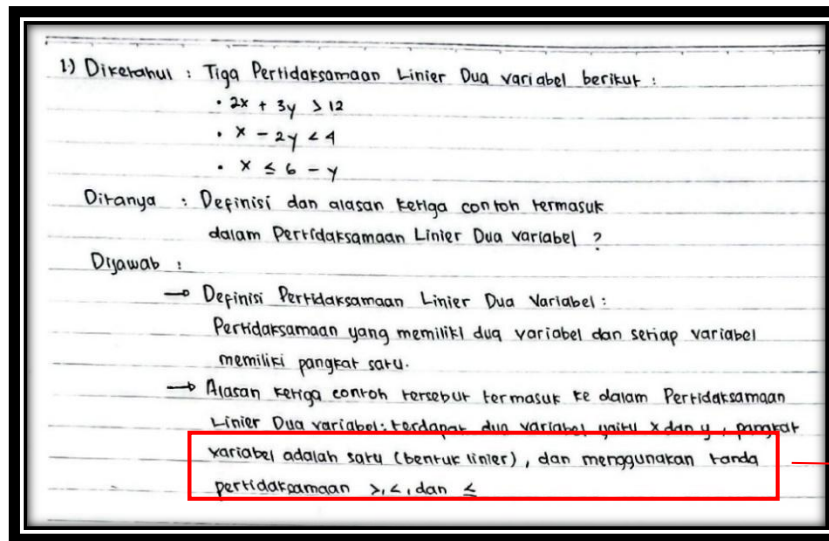 1) Diketahui : Tiga Pertidaksamaan Linier Dua variabel berikut :
• 2x + 3y > 12
• x - 2y < 4
• x ≤ 6 - y
Ditanya : Definisi dan alasan ketiga contoh termasuk
dalam Pertidaksamaan Linier Dua variabel ?
Dijawab :
→ Definisi Pertidaksamaan Linier Dua Variabel :
Pertidaksamaan yang memiliki dua variabel dan setiap variabel
memiliki pangkat satu.
→ Alasan ketiga contoh tersebut termasuk ke dalam Pertidaksamaan
Linier Dua variabel : terdapat dua variabel yaitu x dan y, pangkat
variabel adalah satu (bentuk linier), dan menggunakan tanda
pertidaksamaan >, <, dan ≤